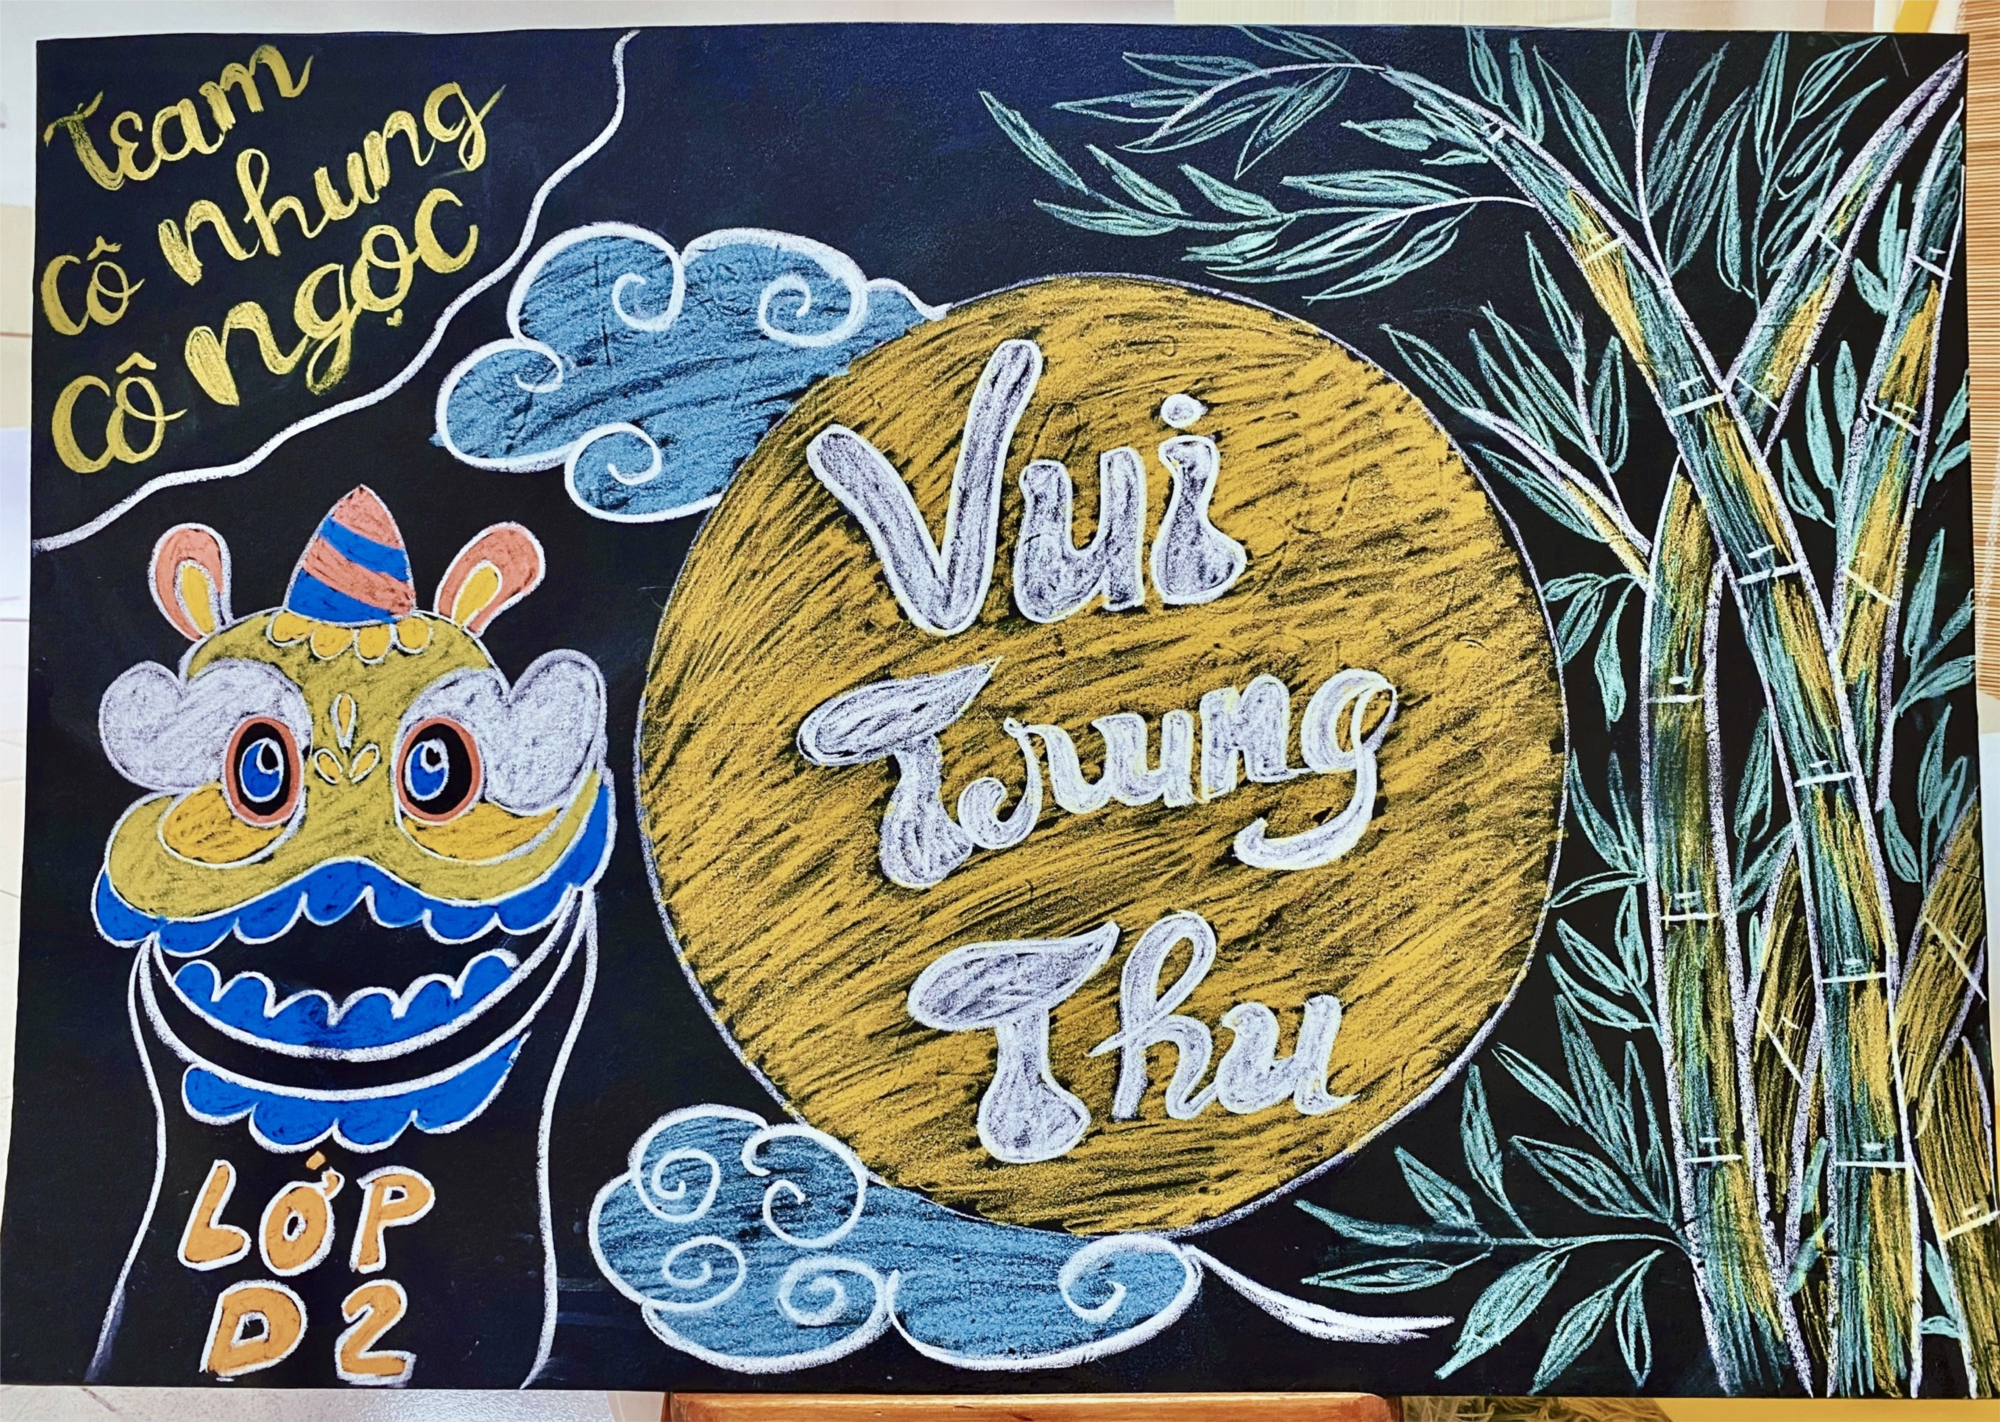 Team
Cô Nhung
Cô Ngọc
Vui
Trung
Thu
LỚP
D2